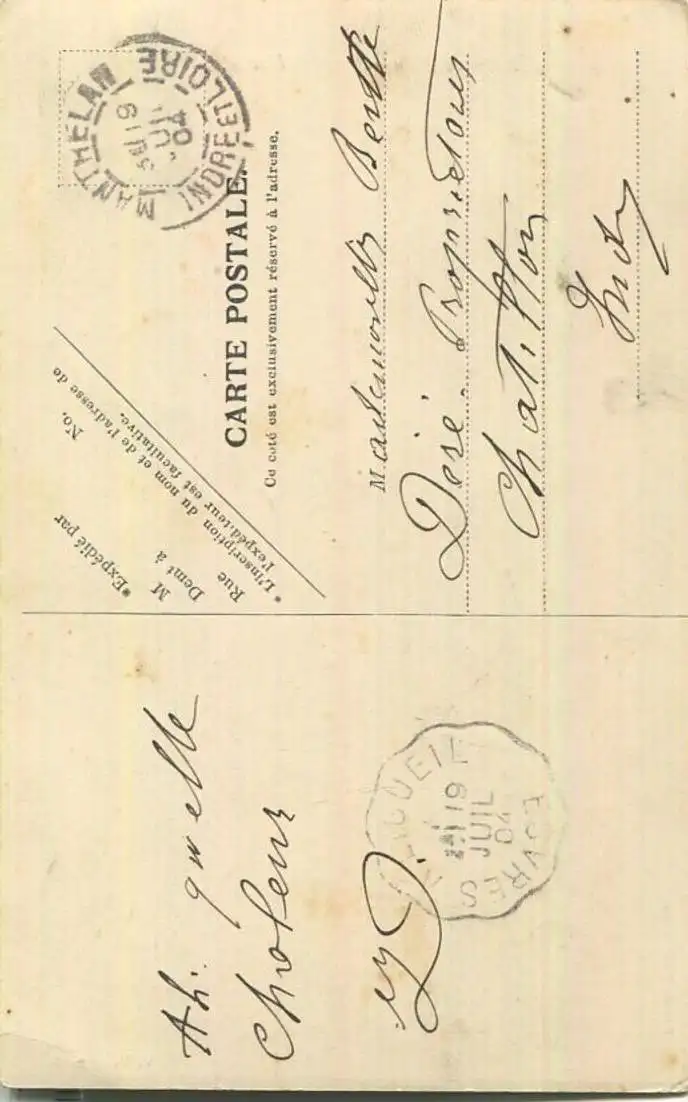 Ah. quelle
Chaleur
D.
CARTE POSTALE.
Ce coté est exclusivement réservé à l'adresse.
*Expédié par
M
Demt à
Rue
No.
*L'inscription du nom et de l'adresse de
l'expéditeur est facultative.
Mademoiselle Berthe
Désé. Propriétaire
Chatillon
Indre
MANTHELAN
19
JUIL
04
INDRE ET LOIRE
19
JUIL
04